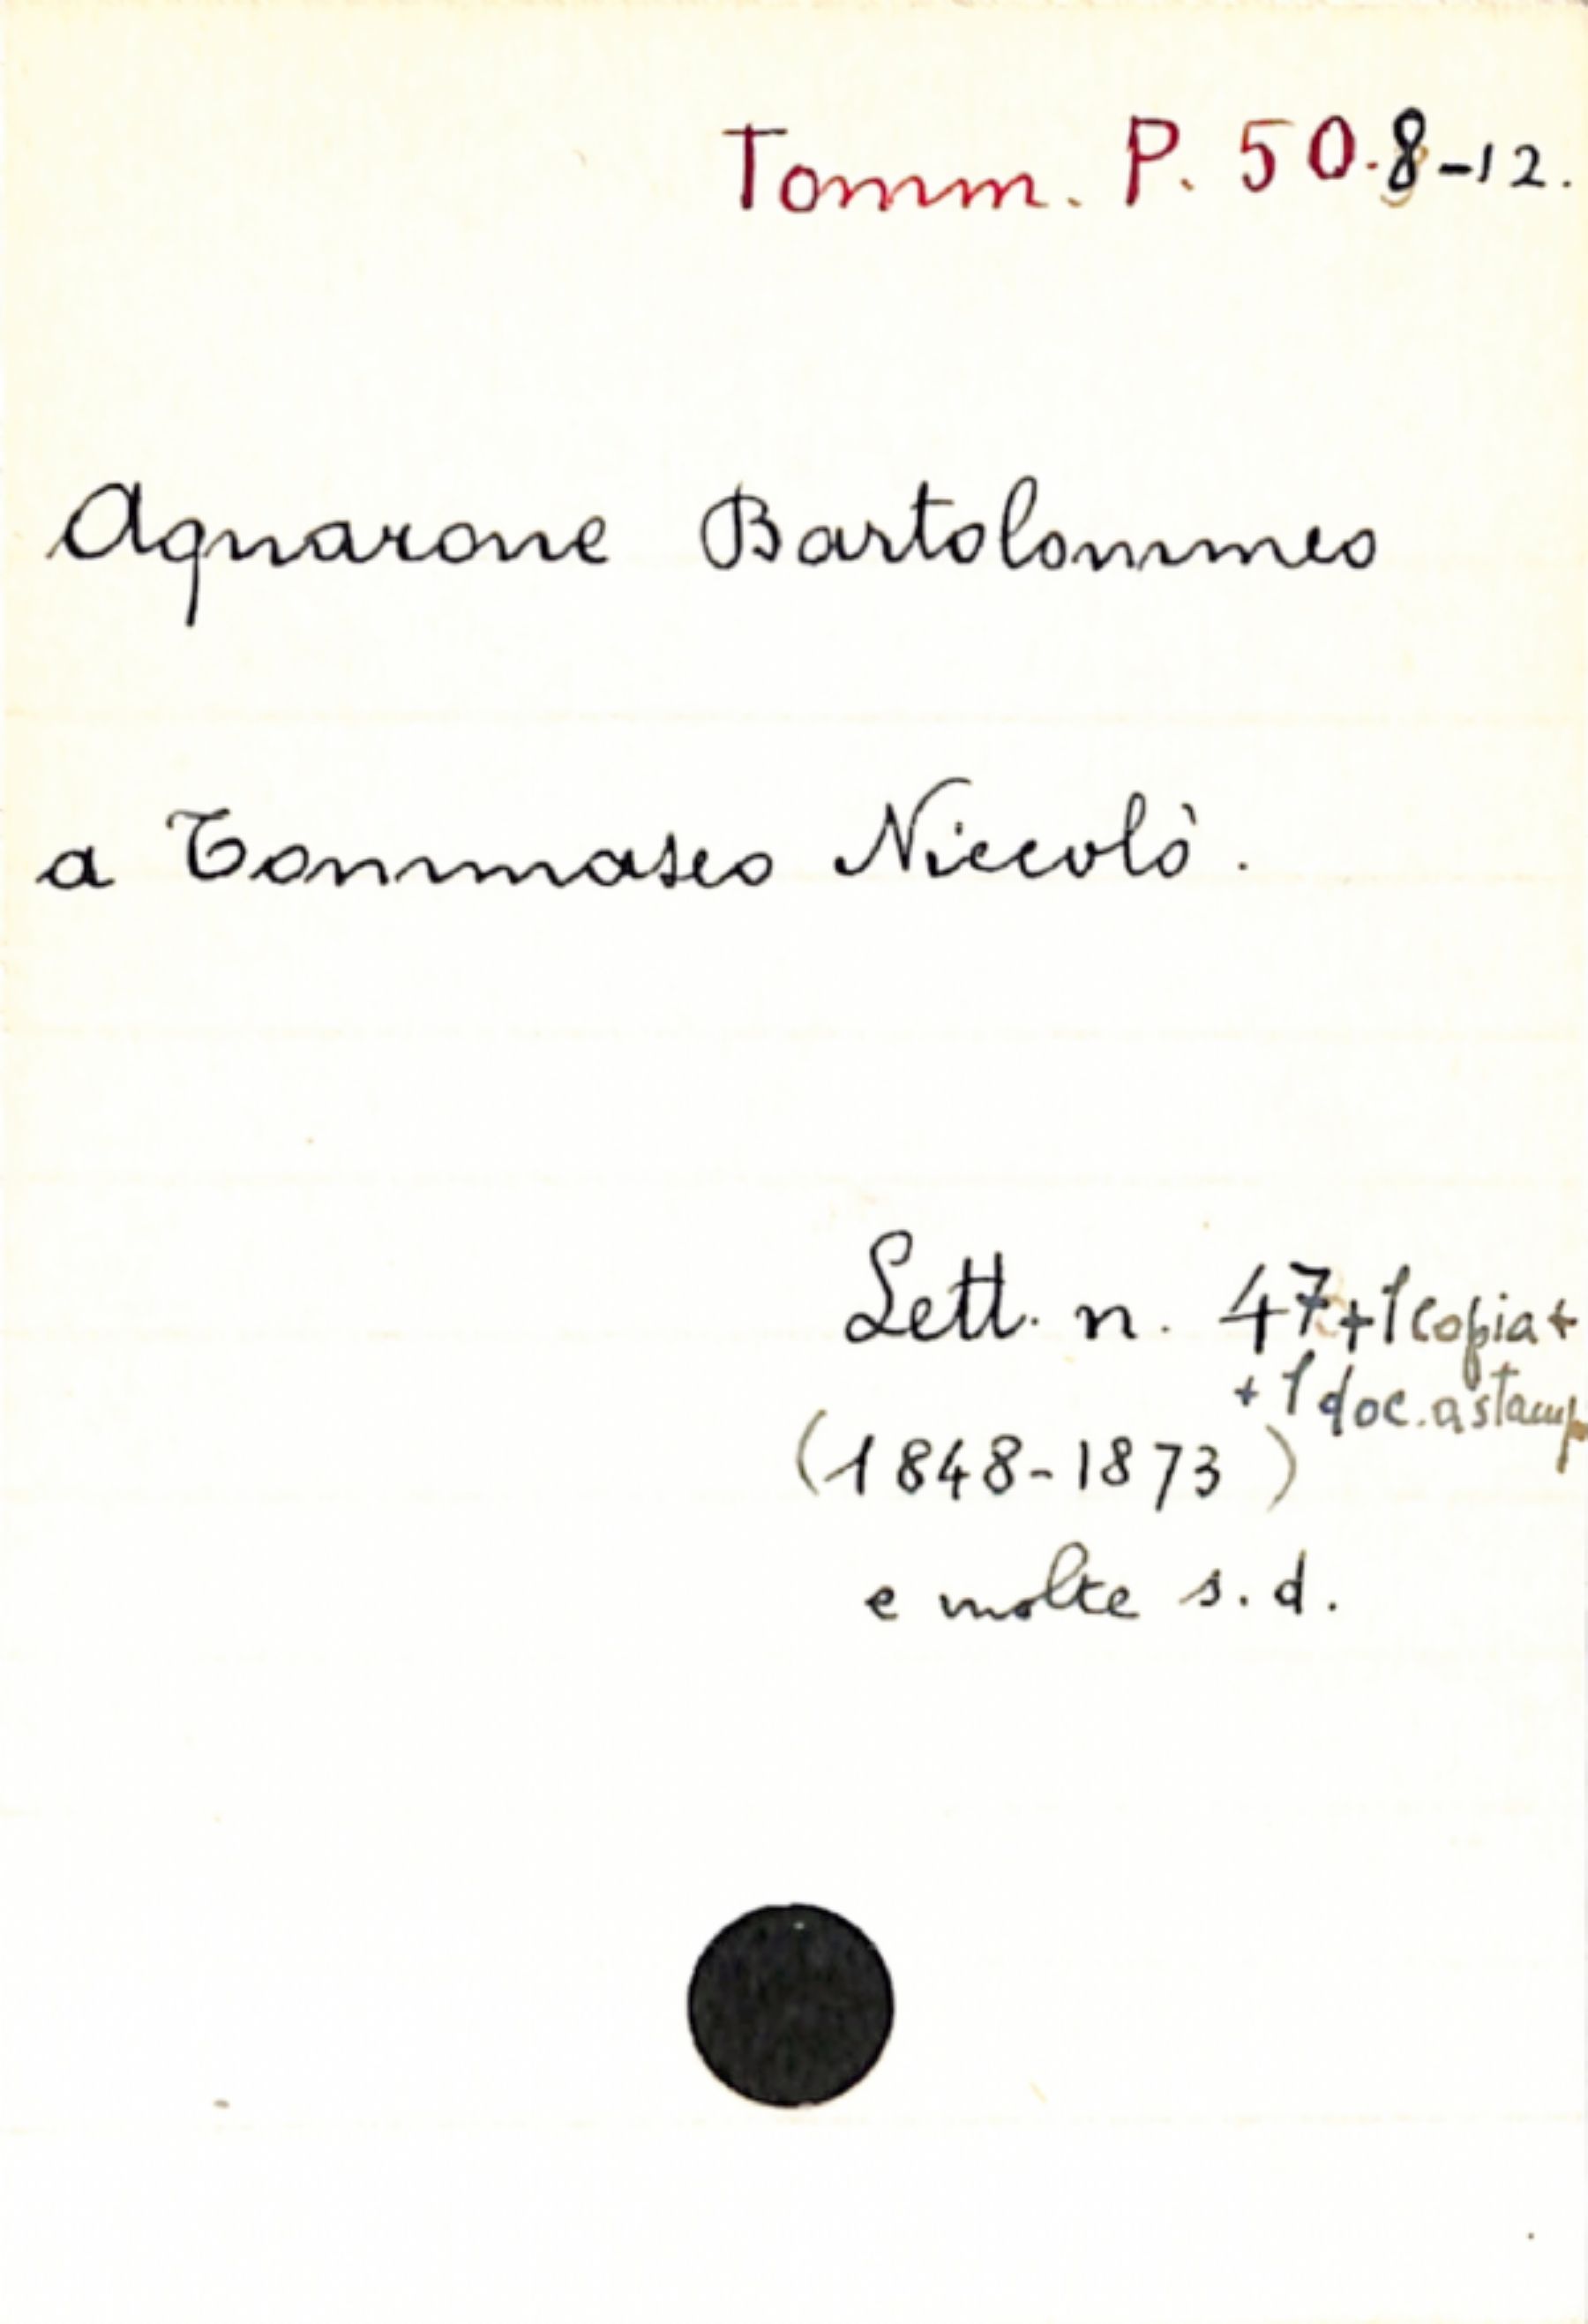 Tomm. P. 50.8-12.
Aquarone Bartolommeo
a Tommaseo Niccolò.
Lett. n. 47+1 copia+
+1 doc. a stamp
(1848-1873)
e molte s. d.